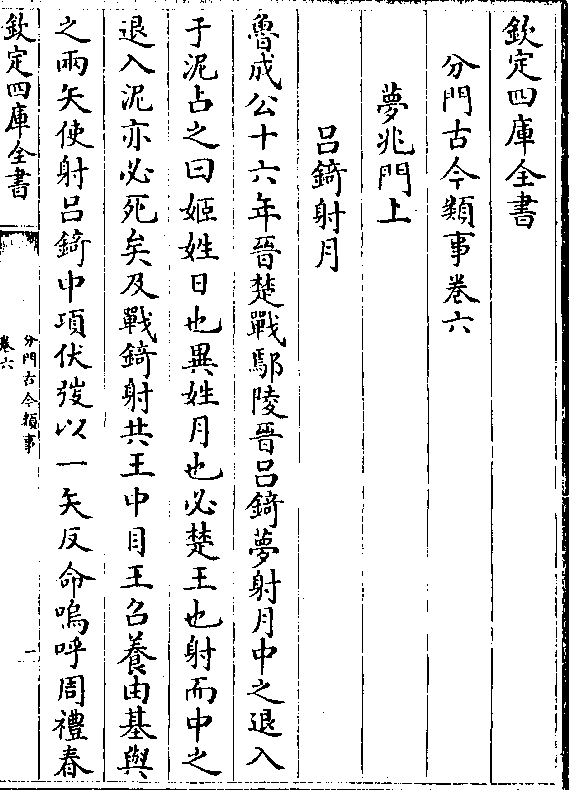 欽定四庫全書
分門古今類事卷六
夢兆門上
呂錡射月
魯成公十六年晉楚戰鄢陵晉呂錡夢射月中之退入
于泥占之曰姬姓日也異姓月也必楚王也射而中之
退入泥亦必死矣及戰錡射共王中目王召養由基與
之兩矢使射呂錡中項伏弢以一矢反命嗚呼周禮春
欽定四庫全書
分門古今類事
卷六
一